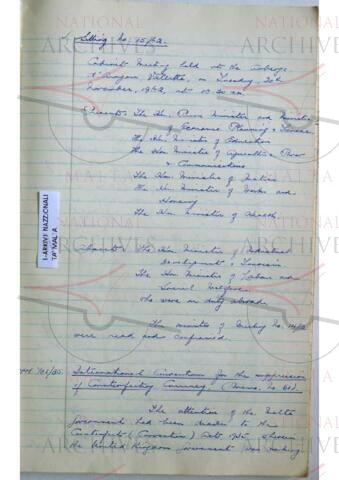 Sitting No. 15/62.
Cabinet Meeting held at the Auberge
d'Aragon, Valletta, on Tuesday, 20th
November, 1962, at 10.30 am.
Present: The Hon. Prime Minister and Minister
of Economic Planning & Finance
The Hon Minister of Education
The Hon Minister of Agriculture, Power
& Communications
The Hon Minister of Justice
The Hon Minister of Works and
Housing
The Hon Minister of Health
Absent: The Hon Minister of Industrial
Development & Tourism
The Hon Minister of Labour and
Social Welfare
who were on duty abroad.
The minutes of Meeting No. 14/62
were read and confirmed.
International Convention for the suppression
of Counterfeiting Currency. (Memo. No. 60)
The attention of the Malta
Government had been drawn to the
Counterfeit (Convention) Act, 1935, whereby
the United Kingdom Government was
L-ARKIVJ NAZZJONALI
TA' MALTA
NATIONAL
ARCHIVES
MALTA